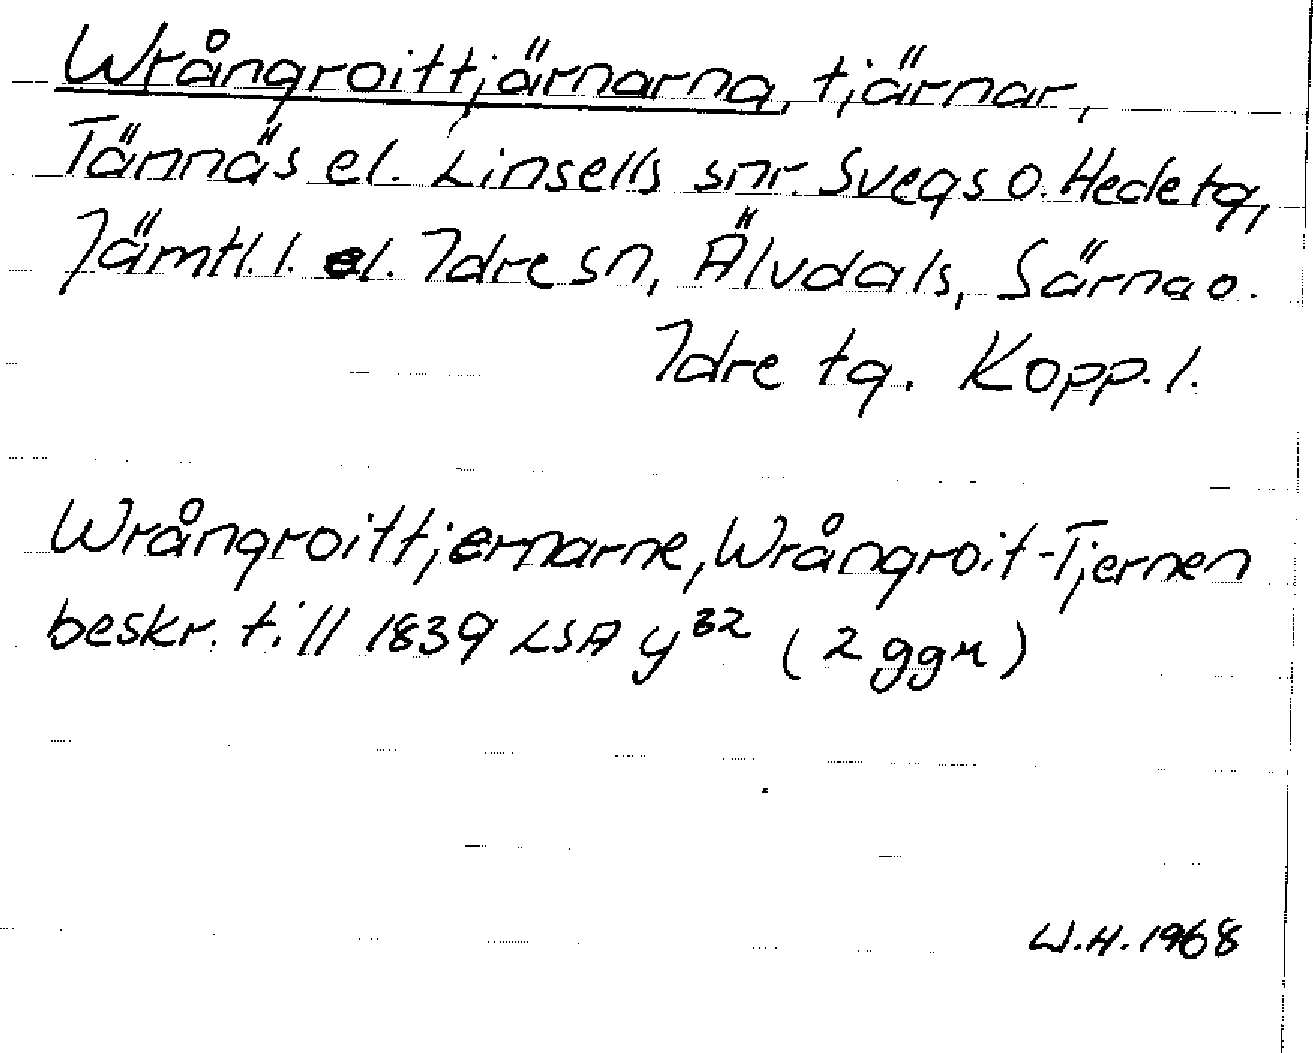 Wrångroittjärnarna, tjärnar,
Tännäs el. Linsells snr. Svegs o. Hede tg,
Jämtl. l. el. Idre sn, Älvdals, Särna o.
Idre tg. Kopp. l.
Wrångroittjernarne, Wrångroit-Tjernen
beskr. till 1839 LSA y³² (2 ggr)
W.H. 1968